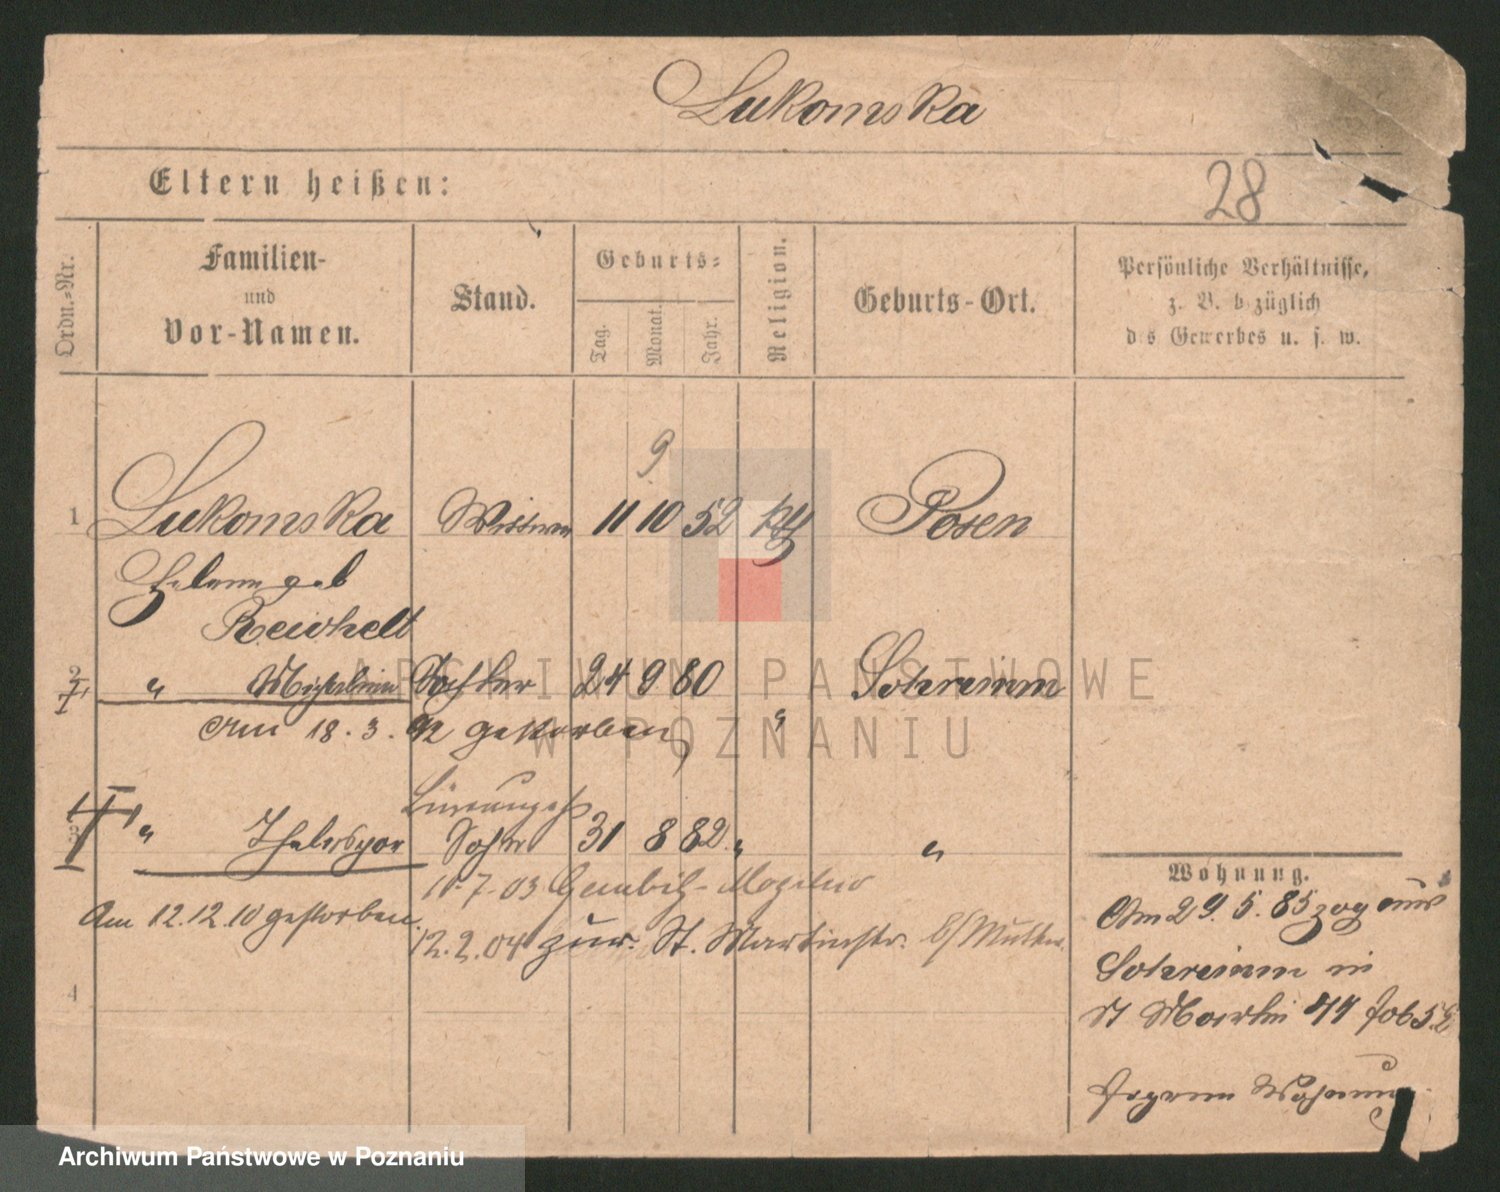 Lukomska
Eltern heißen:
28
Ordn.-Nr.
Familien-
und
Vor-Namen.
Stand.
Geburts-
Tag.
Monat.
Jahr.
Religion.
Geburts-Ort.
Persönliche Verhältnisse,
z. B. bezüglich
des Gewerbes u. s. w.
9
1 Lukomska 11 10 52 Posen
geb
Reichelt
2 " Tochter 24 9 80 Schrimm
Am 18.3.92 gestorben "
3 " Sohn 31 8 82 " "
11.7.03 Gembitz-Mogilno
Am 12.12.10 gestorben.
12.2.04 zur. St. Martinstr. b/Mutter.
4
Wohnung.
Am 29.5.85 zog aus
Schrimm in
St Martin
Wohnung
ARCHIWUM PAŃSTWOWE
W POZNANIU
Archiwum Państwowe w Poznaniu